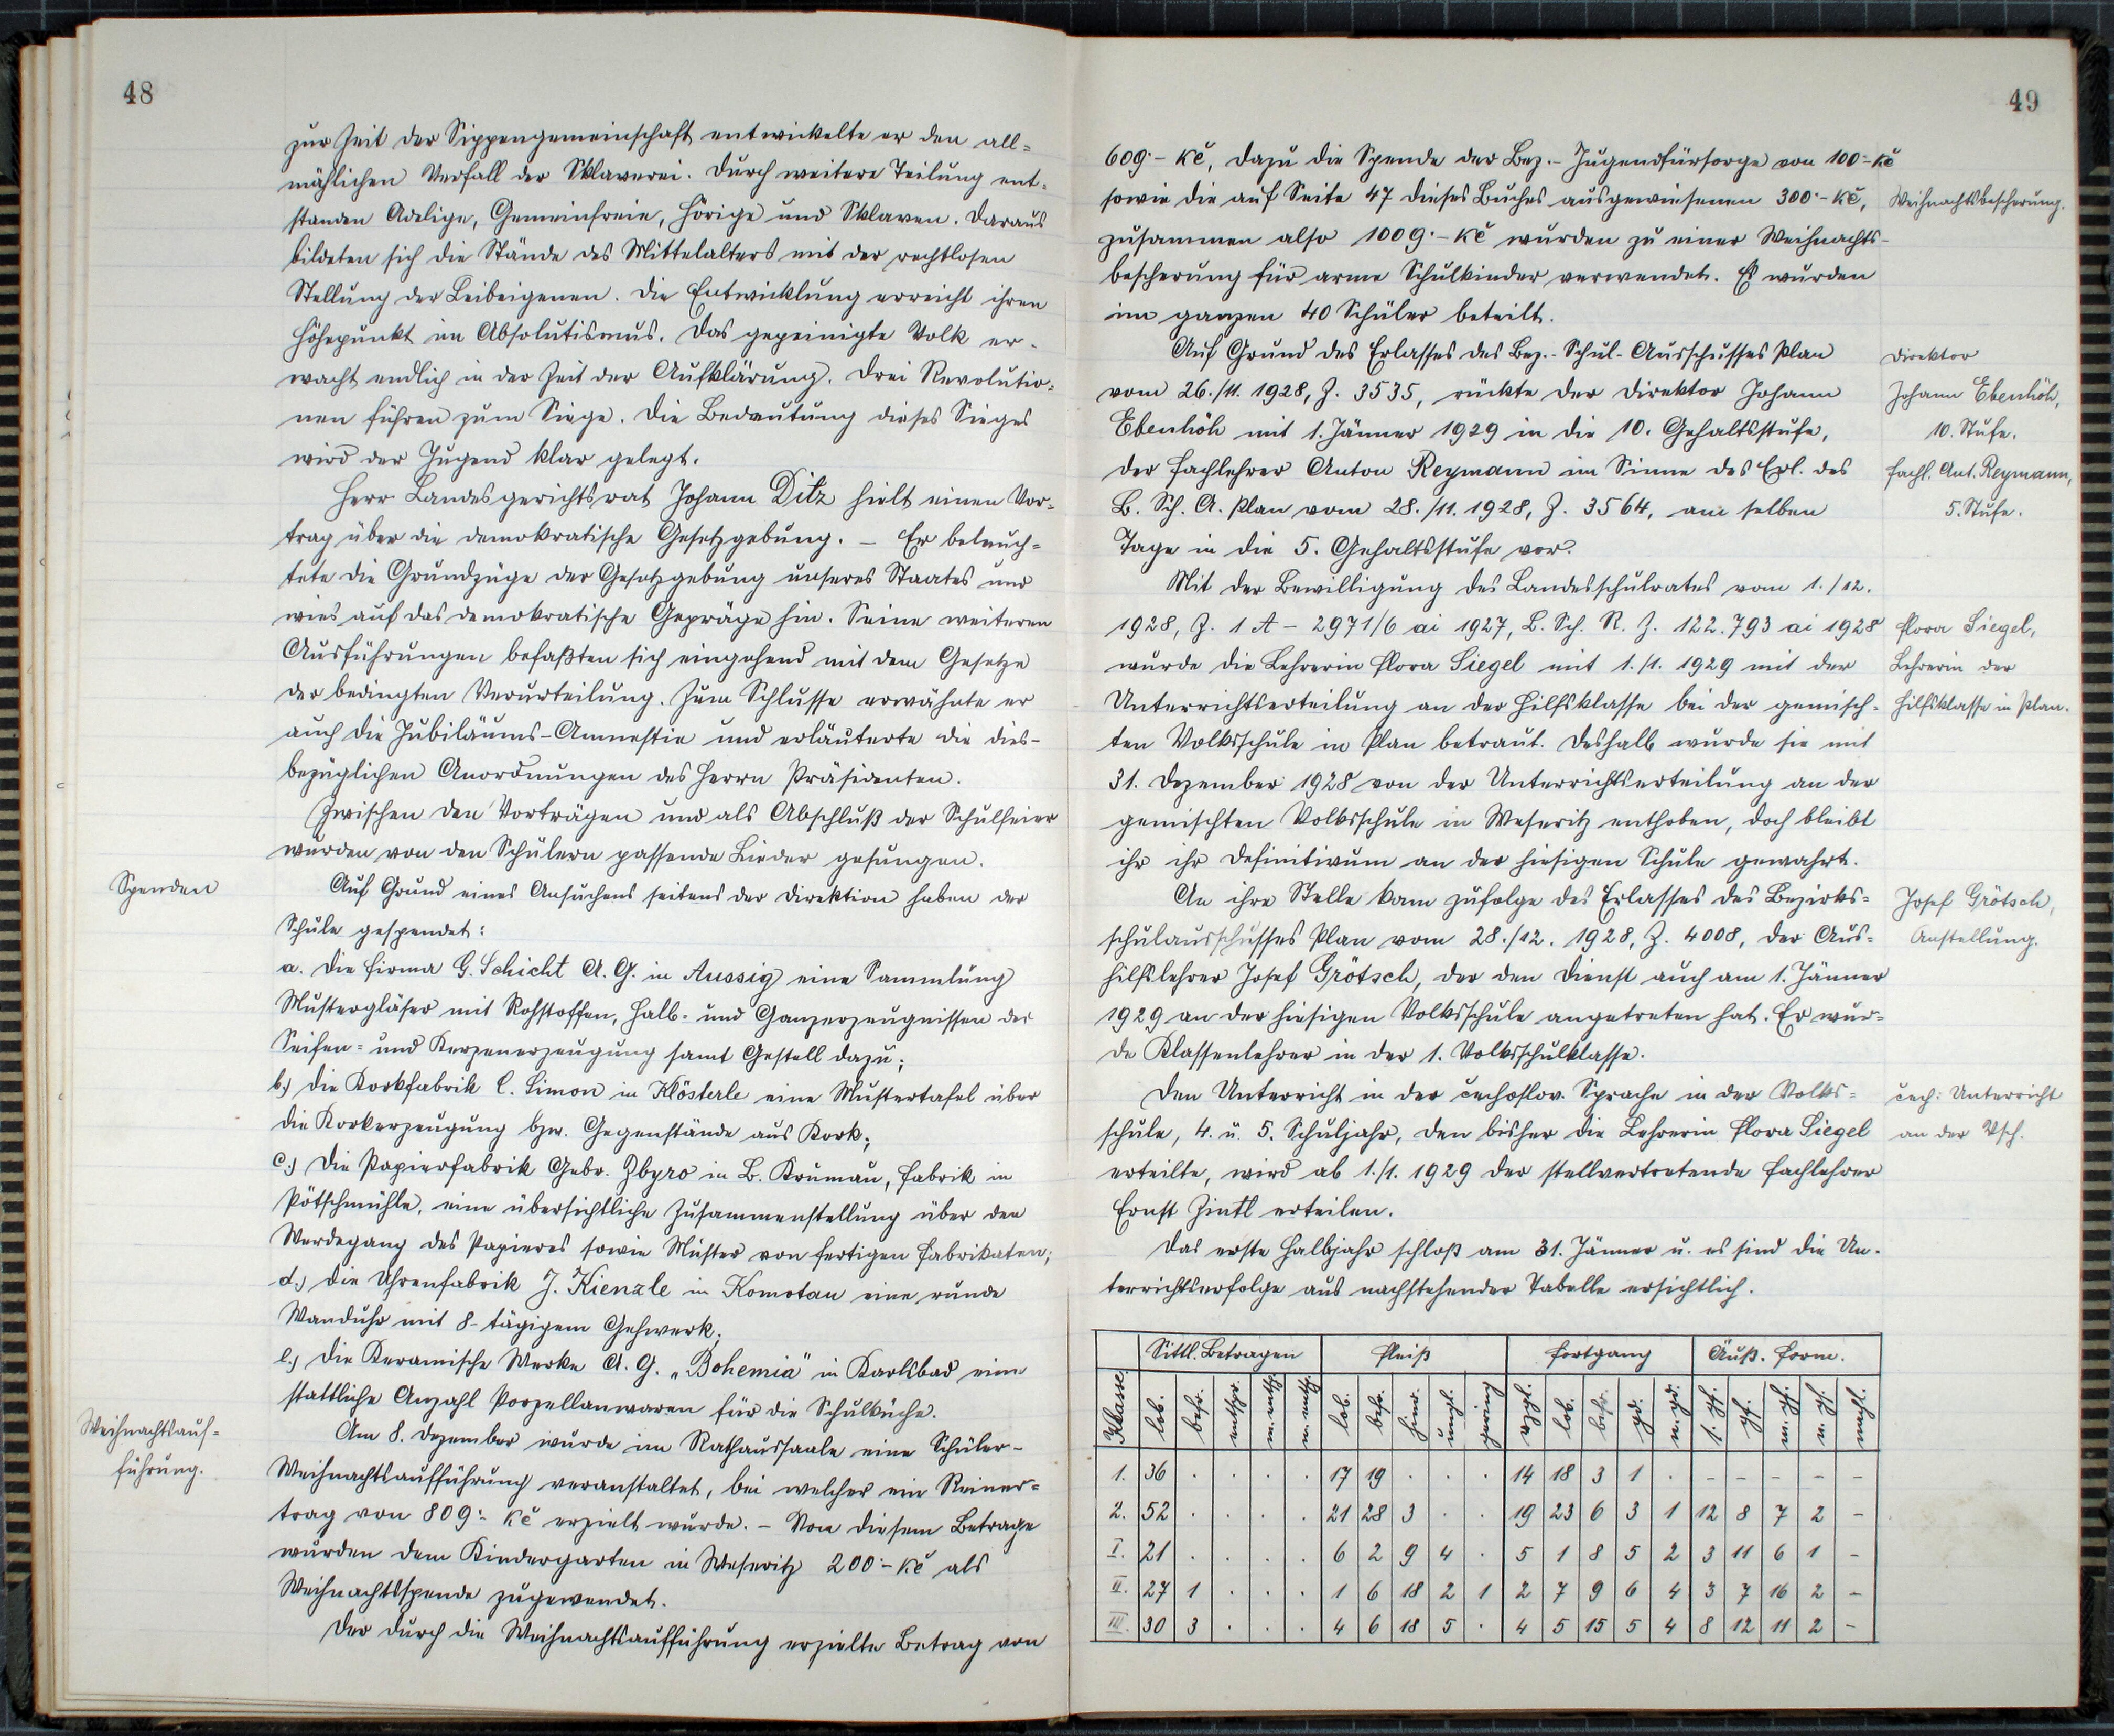 48
zur Zeit der Sippengemeinschaft entwickelte er den all=
mählichen Verfall der Sklaverei. Durch weitere Teilung ent-
standen Adelige, Gemeinfreie, Hörige und Sklaven. Daraus
bildeten sich die Stände des Mittelalters mit der rechtlosen
Stellung der Leibeigenen. Die Entwicklung erreicht ihren
Höhepunkt im Absolutismus. Das gepeinigte Volk er-
wacht endlich in der Zeit der Aufklärung. Drei Revolutio=
nen führen zum Siege. Die Bedeutung dieses Sieges
wird der Jugend klar gelegt.
Herr Landesgerichtsrat Johann Ditz hielt einen Vor-
trag über die demokratische Gesetzgebung. – Er beleuch=
tete die Grundzüge der Gesetzgebung unseres Staates und
wies auf das demokratische Gepräge hin. Seine weiteren
Ausführungen befaßten sich eingehend mit dem Gesetze
der bedingten Verurteilung. Zum Schlusse erwähnte er
auch die Jubiläums-Amnestie und erläuterte die dies-
bezüglichen Anordnungen des Herrn Präsidenten.
Zwischen den Vorträgen und als Abschluß der Schulfeier
wurden von den Schülern passende Lieder gesungen.
Spenden
Auf Grund eines Ansuchens seitens der Direktion haben der
Schule gespendet:
a. Die Firma G. Schicht A. G. in Aussig eine Sammlung
Mustergläser mit Rohstoffen, Halb- und Ganzerzeugnissen der
Seifen= und Kerzenerzeugung samt Gestell dazu;
b.) die Korkfabrik C. Simon in Klösterle eine Mustertafel über
die Korkerzeugung bzw. Gegenstände aus Kork;
c.) Die Papierfabrik Gebr. Zbyro in B. Krumau, Fabrik in
Pötschmühle, eine übersichtliche Zusammenstellung über den
Werdegang des Papieres sowie Muster von fertigen Fabrikaten;
d.) die Uhrenfabrik J. Kienzle in Komotau eine runde
Wanduhr mit 8-tägigem Gehwerk;
e.) Die Keramische Werke A. G. „Bohemia" in Karlsbad eine
stattliche Anzahl Porzellanwaren für die Schulküche.
Weihnachtsauf=
führung.
Am 8. Dezember wurde im Rathaussaale eine Schüler-
Weihnachtsaufführung veranstaltet, bei welcher ein Reiner=
trag von 809·- Kč erzielt wurde. – Von diesem Betrage
wurden dem Kindergarten in Weseritz 200·- Kč als
Weihnachtsspende zugewendet.
Der durch die Weihnachtsaufführung erzielte Betrag von
49
609·- Kč, dazu die Spende der Bez.- Jugendfürsorge von 100·- Kč
sowie die auf Seite 47 dieses Buches ausgewiesenen 300·- Kč,
Weihnachtsbescherung.
zusammen also 1009·- Kč wurden zu einer Weihnachts-
bescherung für arme Schulkinder verwendet. Es wurden
im ganzen 40 Schüler beteilt.
Auf Grund des Erlasses des Bez.- Schul- Ausschusses Plan
Direktor
vom 26./11. 1928, Z. 3535, rückte der Direktor Johann
Johann Ebenhöh,
Ebenhöh mit 1. Jänner 1929 in die 10. Gehaltsstufe,
10. Stufe.
der Fachlehrer Anton Reymann im Sinne des Erl. des
Fachl. Ant. Reymann,
B. Sch. A. Plan vom 28./11. 1928, Z. 3564, am selben
5. Stufe.
Tage in die 5. Gehaltsstufe vor.
Mit der Bewilligung des Landesschulrates vom 1./12.
1928, Z. 1 A – 2971/6 ai 1927, L. Sch. R. Z. 122.793 ai 1928
Flora Siegel,
wurde die Lehrerin Flora Siegel mit 1./1. 1929 mit der
Lehrerin der
Unterrichtserteilung an der Hilfsklasse bei der gemisch-
Hilfsklasse in Plan.
ten Volksschule in Plan betraut. Deshalb wurde sie mit
31. Dezember 1928 von der Unterrichtserteilung an der
gemischten Volksschule in Weseritz enthoben, doch bleibt
ihr ihr Definitivum an der hiesigen Schule gewahrt.
An ihre Stelle kam zufolge des Erlasses des Bezirks=
Josef Grötsch,
schulausschusses Plan vom 28./12. 1928, Z. 4008, der Aus=
Anstellung.
hilfslehrer Josef Grötsch, der den Dienst auch am 1. Jänner
1929 an der hiesigen Volksschule angetreten hat. Er wur=
de Klassenlehrer in der 1. Volksschulklasse.
Den Unterricht in der čechoslov. Sprache in der Volks=
čech: Unterricht
schule, 4. u. 5. Schuljahr, den bisher die Lehrerin Flora Siegel
an der Vsch.
erteilte, wird ab 1./1. 1929 der stellvertretende Fachlehrer
Ernst Zintl erteilen.
Das erste Halbjahr schloß am 31. Jänner u. es sind die Un-
terrichtserfolge aus nachstehender Tabelle ersichtlich.
Sittl. Betragen Fleiß Fortgang Äuß. Form.
Klasse lob. befr. entspr. m. entsp. n. entsp. lob. befr. hinr. ungl. gering vzgl. lob. befr. gd. n. gd. s. gf. gf. m. gf. n. gf. nachl.
1. 36 . . . . 17 19 . . . 14 18 3 1 . – – – – –
2. 52 . . . . 21 28 3 . . 19 23 6 3 1 12 8 7 2 –
I. 21 . . . . 6 2 9 4 . 5 1 8 5 2 3 11 6 1 –
II. 27 1 . . . 1 6 18 2 1 2 7 9 6 4 3 7 16 2 –
III. 30 3 . . . 4 6 18 5 . 4 5 15 5 4 8 12 11 2 –